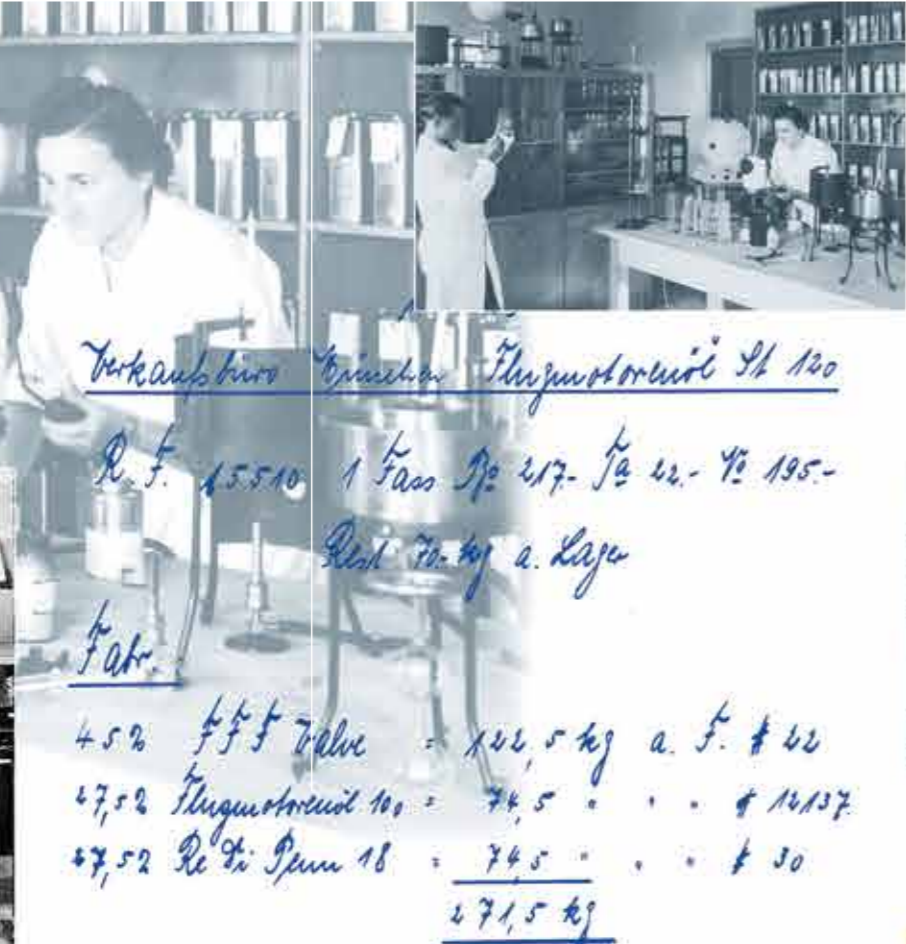 Verkaufsbüro München Flugmotorenöl St 120
R. F. 15510 1 Fass Bo 217.- Ta 22.- No 195.-
Rest 70.- kg a. Lager
Fabr.
45% FFF Valve = 122,5 kg a. F. # 22
27,5% Flugmotorenöl 100 = 74,5 " " " # 12137
27,5% Re Di Penn 18 = 74,5 " " " # 30
271,5 kg